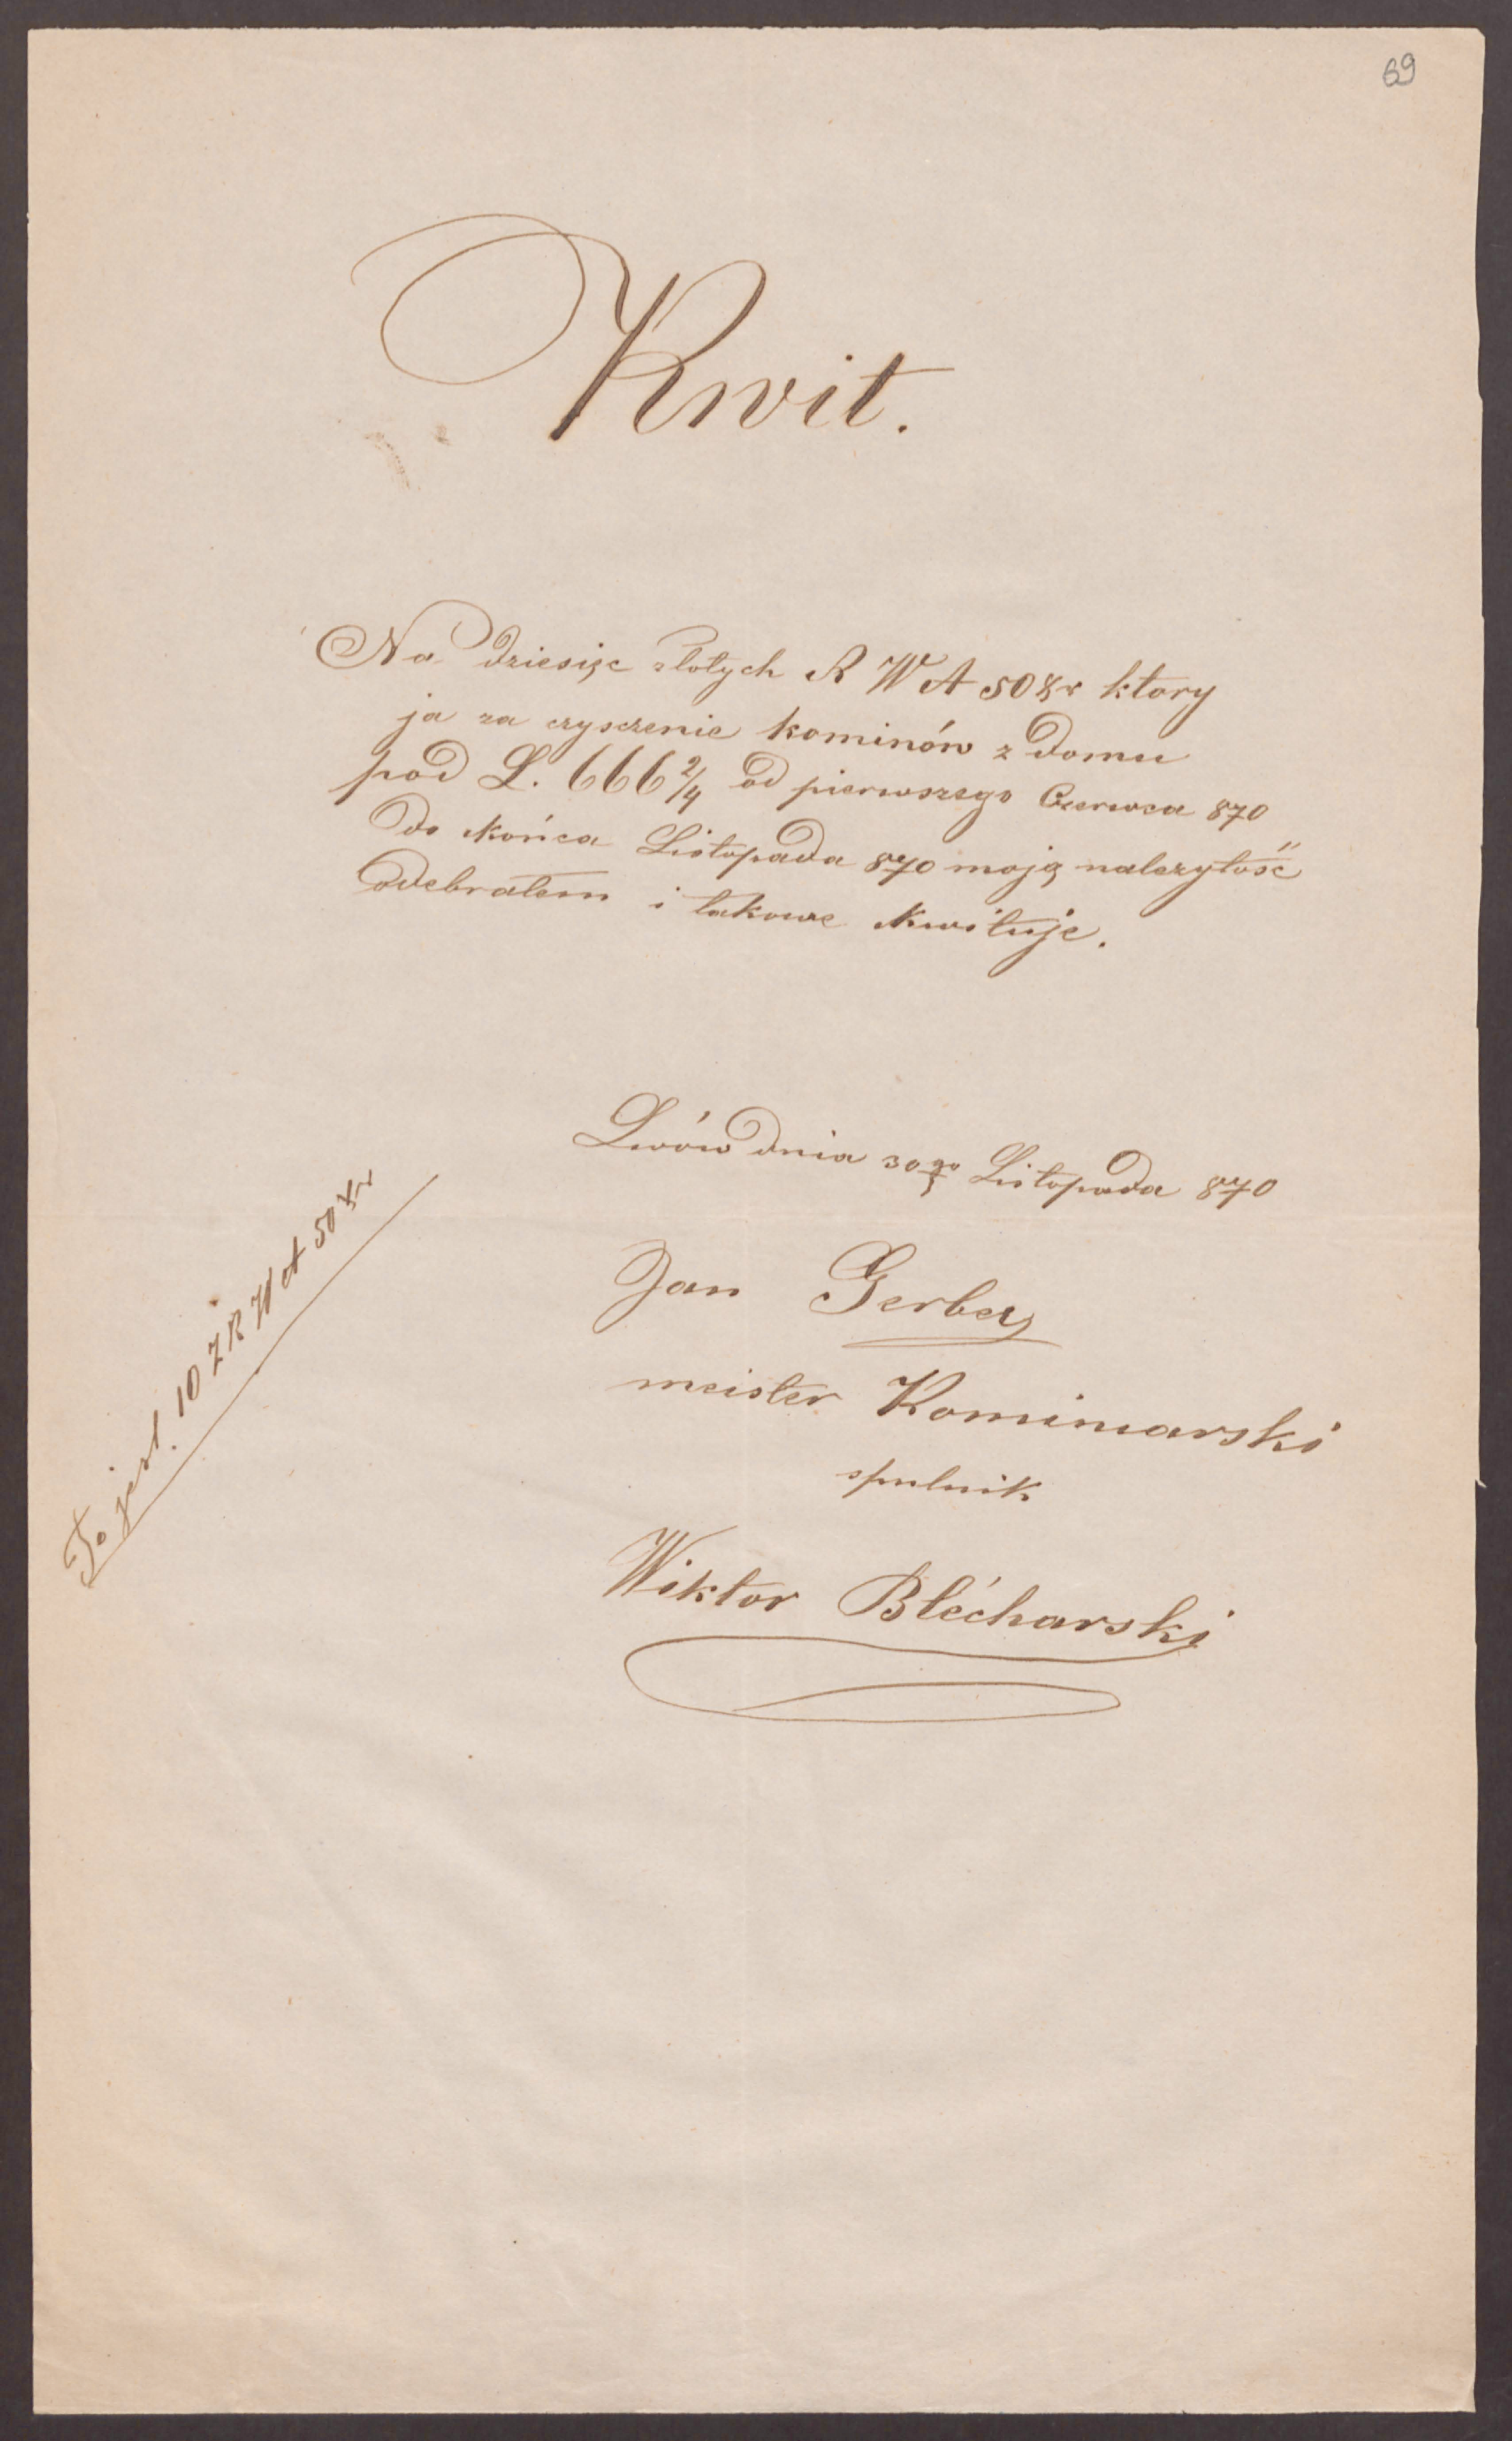 69
Kwit.
Na dziesięc złotych R W A 50 Xr ktory
ja za czysczenie kominów z domu
pod L. 666 2/4 od pierwszego Czerwca 870
do końca Listopada 870 moją należytość
odebrałem i takowe kwituje.
Lwów dnia 30go Listopada 870
Jan Gerber
meister Kominiarski
spulnik
Wiktor Blécharski
To jest. 10 ZR W A 50 Xr